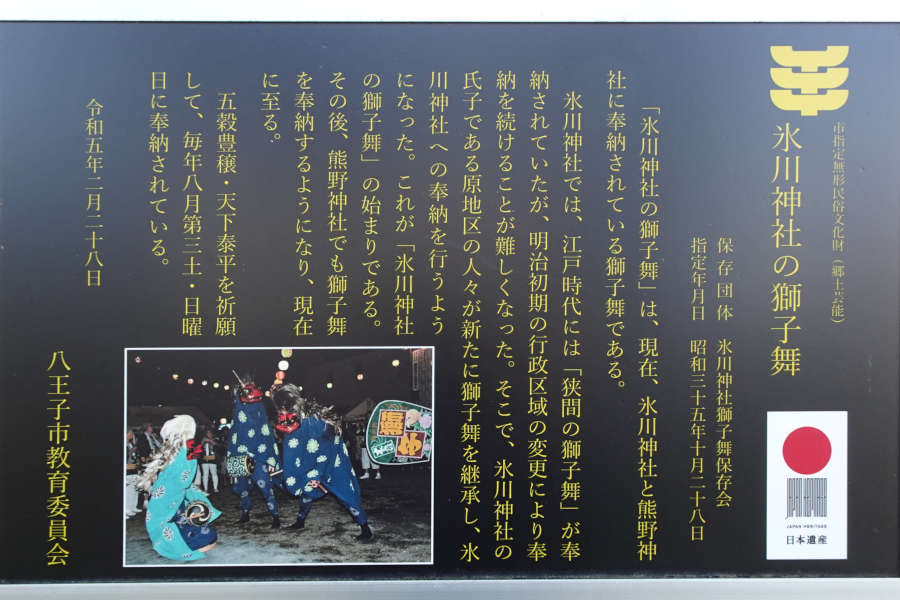 市指定無形民俗文化財(郷土芸能)
氷川神社の獅子舞
保存団体　氷川神社獅子舞保存会
指定年月日　昭和三十五年十月二十八日
「氷川神社の獅子舞」は、現在、氷川神社と熊野神
社に奉納されている獅子舞である。
氷川神社では、江戸時代には「狭間の獅子舞」が奉
納されていたが、明治初期の行政区域の変更により奉
納を続けることが難しくなった。そこで、氷川神社の
氏子である原地区の人々が新たに獅子舞を継承し、氷
川神社への奉納を行うよう
になった。これが「氷川神社
の獅子舞」の始まりである。
その後、熊野神社でも獅子舞
を奉納するようになり、現在
に至る。
五穀豊穣・天下泰平を祈願
して、毎年八月第三土・日曜
日に奉納されている。
令和五年二月二十八日
八王子市教育委員会
JAPAN HERITAGE
日本遺産